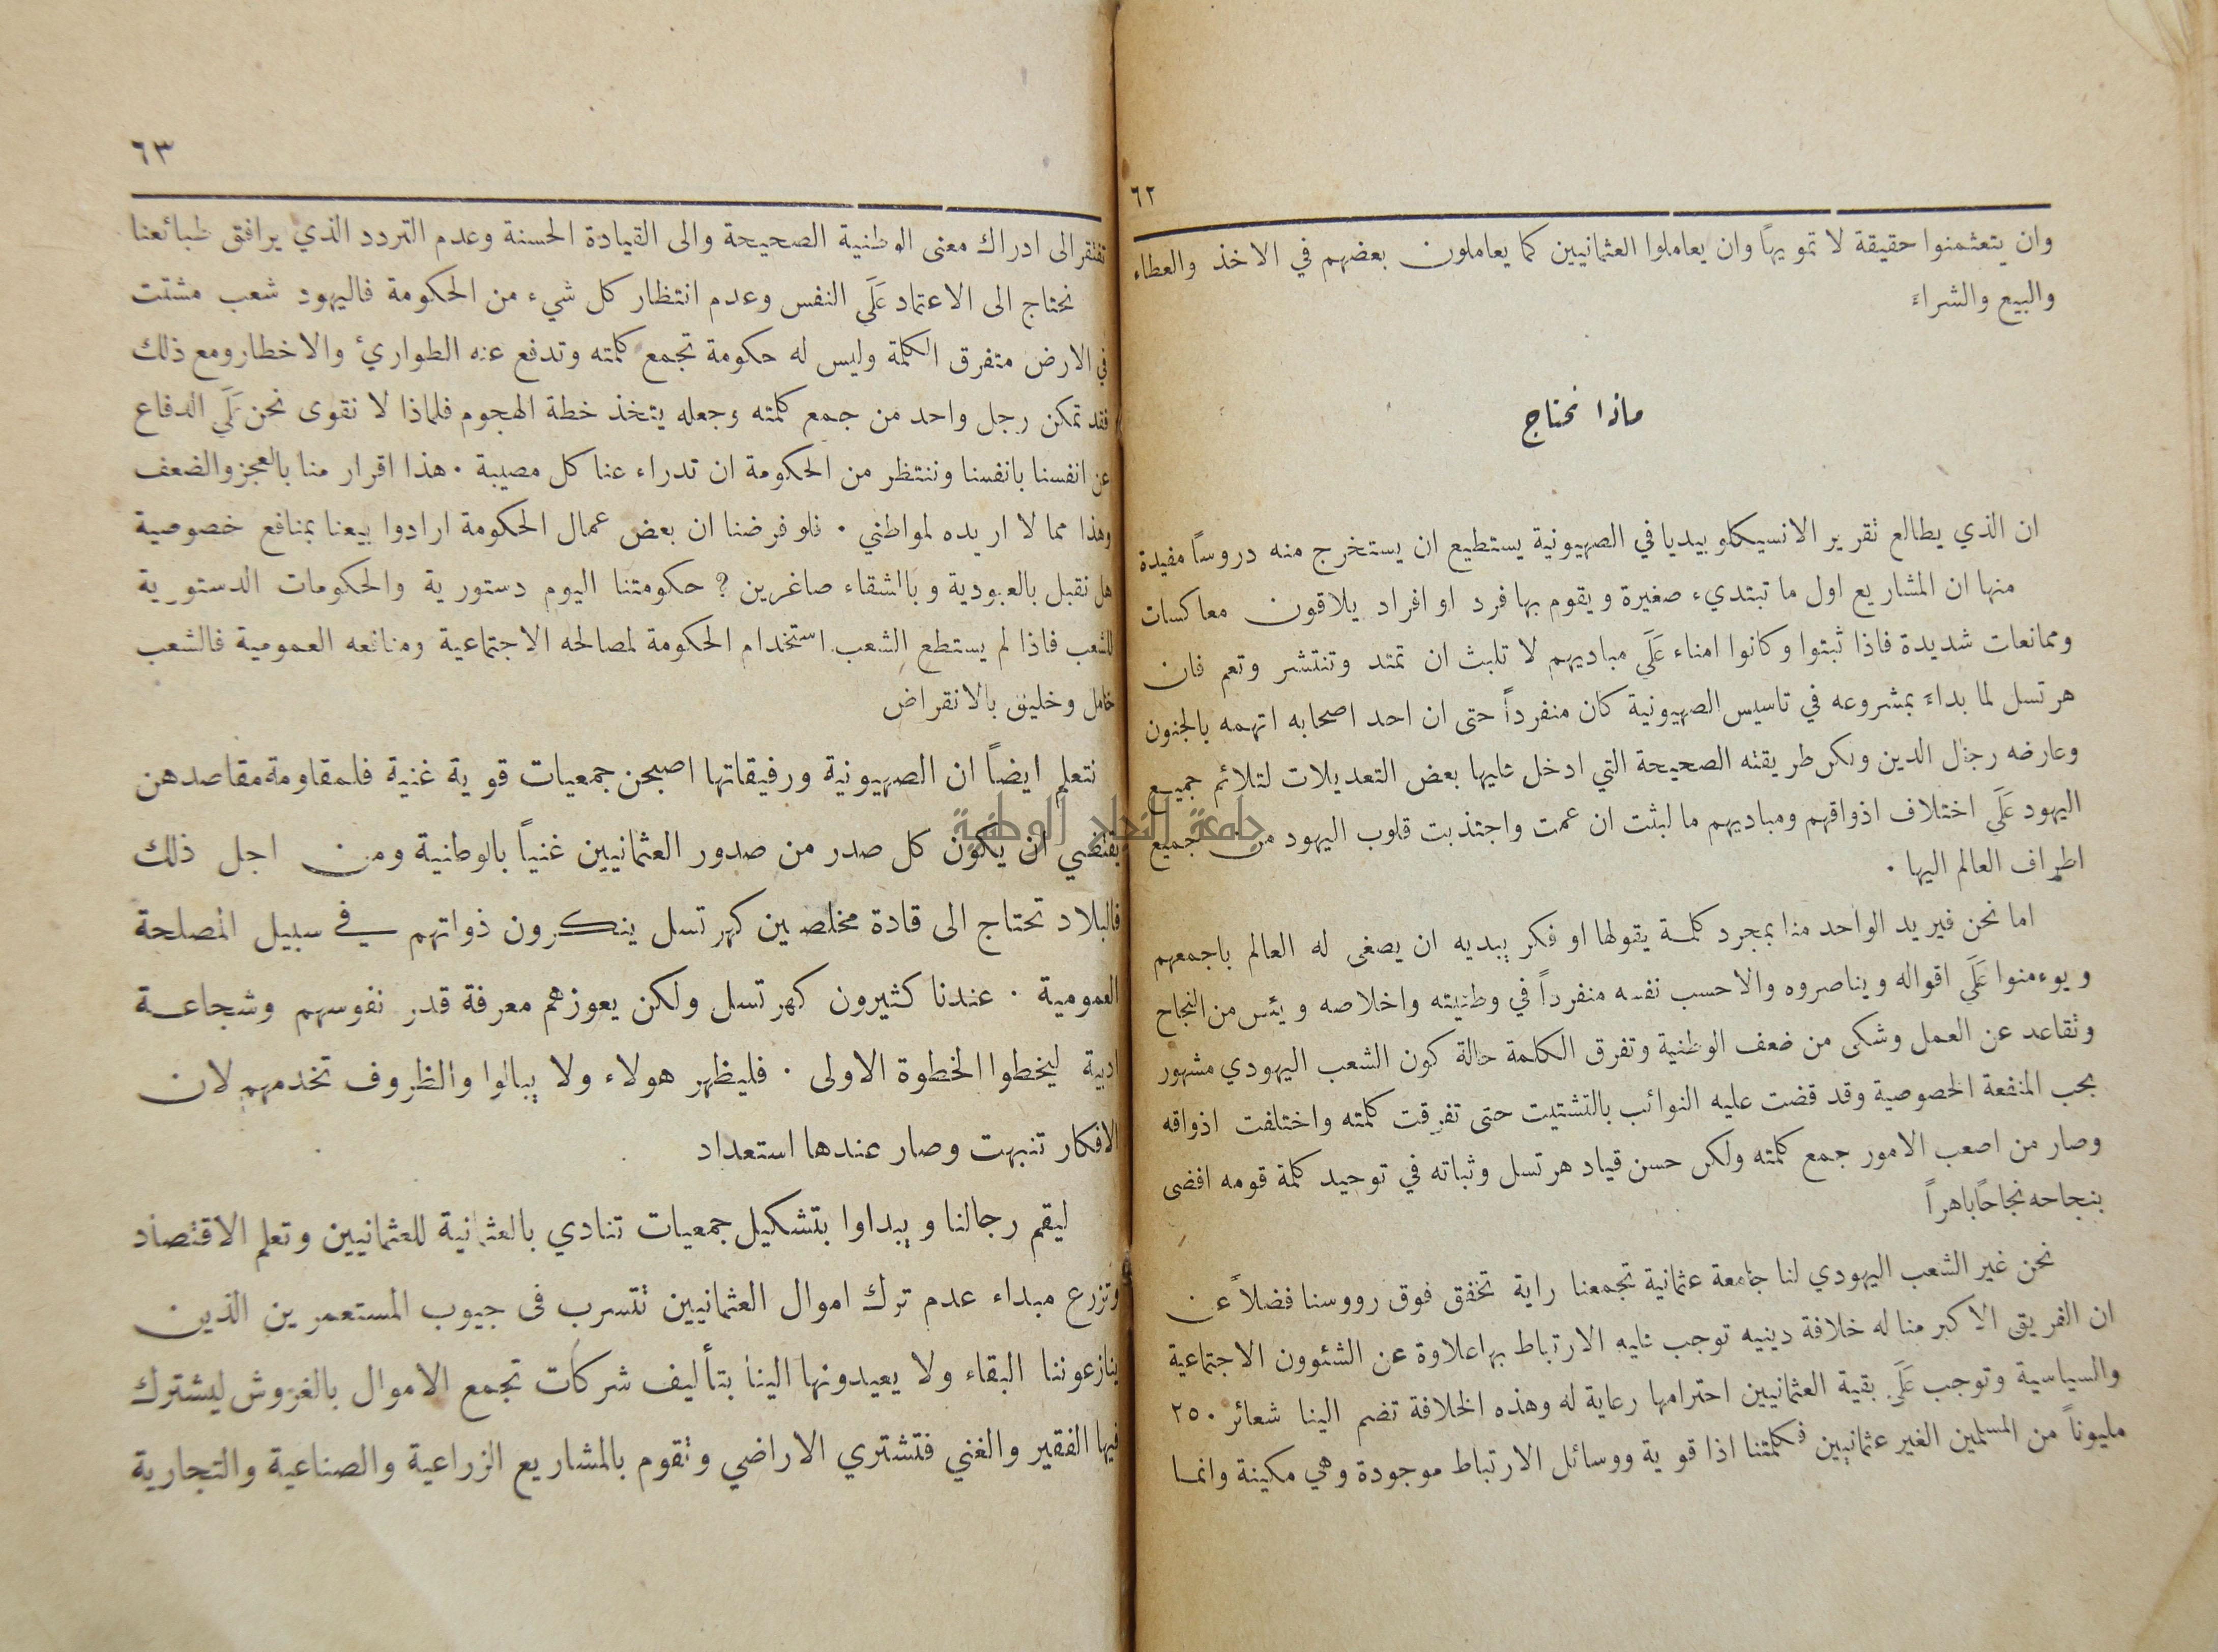 ٦٢
وان يتعثمنوا حقيقة لا تمويهاً وان يعاملوا العثمانيين كما يعاملون بعضهم في الاخذ والعطاء
والبيع والشراء
ماذا نحتاج
ان الذي يطالع تقرير الانسيكلوبيديا في الصهيونية يستطيع ان يستخرج منه دروساً مفيدة
منها ان المشاريع اول ما تبتديء صغيرة ويقوم بها فرد او افراد يلاقون معاكسات
وممانعات شديدة فاذا ثبتوا وكانوا امناء عَلَى مباديهم لا تلبث ان تمتد وتنتشر وتعم فان
هرتسل لما بداءَ بمشروعه في تاسيس الصهيونية كان منفرداً حتى ان احد اصحابه اتهمه بالجنون
وعارضه رجال الدين ولكن طريقته الصحيحة التي ادخل عليها بعض التعديلات لتلائم جميع
اليهود عَلَى اختلاف اذواقهم ومباديهم ما لبثت ان عمت واجتذبت قلوب اليهود من جميع
اطراف العالم اليها ٠
اما نحن فيريد الواحد منا بمجرد كلمة يقولها او فكر يبديه ان يصغى له العالم باجمعهم
ويوءمنوا عَلَى اقواله ويناصروه والا حسب نفسه منفرداً في وطنيته واخلاصه ويئس من النجاح
وتقاعد عن العمل وشكى من ضعف الوطنية وتفرق الكلمة حالة كون الشعب اليهودي مشهور
بحب المنفعة الخصوصية وقد قضت عليه النوائب بالتشتيت حتى تفرقت كلمته واختلفت اذواقه
وصار من اصعب الامور جمع كلمته ولكن حسن قياد هرتسل وثباته في توحيد كلمة قومه افضى
بنجاحه نجاحاً باهراً
نحن غير الشعب اليهودي لنا جامعة عثمانية تجمعنا راية تخفق فوق رووسنا فضلاً عن
ان الفريق الاكبر منا له خلافة دينيه توجب عليه الارتباط بها علاوة عن الشئوون الاجتماعية
والسياسية وتوجب عَلَى بقية العثمانيين احترامها رعاية له وهذه الخلافة تضم الينا شعائر ٢٥٠
مليوناً من المسلمين الغير عثمانيين فكلمتنا اذا قوية ووسائل الارتباط موجودة وهي مكينة وانما
٦٣
تفتقر الى ادراك معنى الوطنية الصحيحة والى القيادة الحسنة وعدم التردد الذي يرافق طبائعنا
نحتاج الى الاعتماد عَلَى النفس وعدم انتظار كل شيء من الحكومة فاليهود شعب مشتت
في الارض متفرق الكلمة وليس له حكومة تجمع كلمته وتدفع عنه الطواريءُ والاخطار ومع ذلك
فقد تمكن رجل واحد من جمع كلمته وجعله يتخذ خطة الهجوم فلماذا لا نقوى نحن عَلَى الدفاع
عن انفسنا بانفسنا وننتظر من الحكومة ان تدراء عنا كل مصيبة ٠ هذا اقرار منا بالعجز والضعف
وهذا مما لا اريده لمواطني ٠ فلو فرضنا ان بعض عمال الحكومة ارادوا بيعنا بمنافع خصوصية
هل نقبل بالعبودية وبالشقاء صاغرين ? حكومتنا اليوم دستورية والحكومات الدستورية
للشعب فاذا لم يستطع الشعب استخدام الحكومة لمصالحه الاجتماعية ومنافعه العمومية فالشعب
خامل وخليق بالانقراض
نتعلم ايضاً ان الصهيونية ورفيقاتها اصبحن جمعيات قوية غنية فلمقاومة مقاصدهن
يقتضي ان يكون كل صدر من صدور العثمانيين غنياً بالوطنية ومن اجل ذلك
فالبلاد تحتاج الى قادة مخلصين كهرتسل ينكرون ذواتهم في سبيل المصلحة
العمومية ٠ عندنا كثيرون كهرتسل ولكن يعوزهم معرفة قدر نفوسهم وشجاعة
ادبية ليخطوا الخطوة الاولى ٠ فليظهر هولاء ولا يبالوا والظروف تخدمهم لان
الافكار تنبهت وصار عندها استعداد
ليقم رجالنا ويبداوا بتشكيل جمعيات تنادي بالعثمانية للعثمانيين وتعلم الاقتصاد
وتزرع مبداء عدم ترك اموال العثمانيين تتسرب فى جيوب المستعمرين الذين
ينازعوننا البقاء ولا يعيدونها الينا بتأليف شركات تجمع الاموال بالغروش ليشترك
فيها الفقير والغني فتشتري الاراضي وتقوم بالمشاريع الزراعية والصناعية والتجارية
جامعة النجاح الوطنية